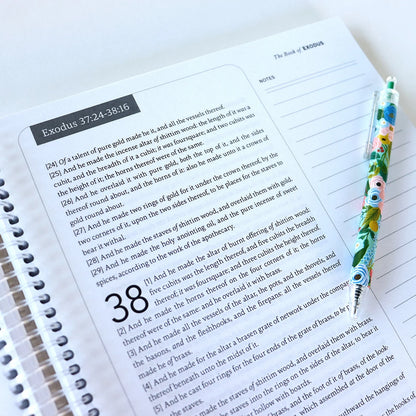 The Book of EXODUS
NOTES
Exodus 37:24-38:16
[24] Of a talent of pure gold made he it, and all the vessels thereof.
[25] And he made the incense altar of shittim wood: the length of it was a
cubit, and the breadth of it a cubit; it was foursquare; and two cubits was
the height of it; the horns thereof were of the same.
[26] And he overlaid it with pure gold, both the top of it, and the sides
thereof round about, and the horns of it: also he made unto it a crown of
gold round about.
[27] And he made two rings of gold for it under the crown thereof, by the
two corners of it, upon the two sides thereof, to be places for the staves to
bear it withal.
[28] And he made the staves of shittim wood, and overlaid them with gold.
[29] And he made the holy anointing oil, and the pure incense of sweet
spices, according to the work of the apothecary.
38 [1] And he made the altar of burnt offering of shittim wood:
five cubits was the length thereof, and five cubits the breadth
thereof; it was foursquare; and three cubits the height thereof.
[2] And he made the horns thereof on the four corners of it; the horns
thereof were of the same: and he overlaid it with brass.
[3] And he made all the vessels of the altar, the pots, and the shovels, and
the basons, and the fleshhooks, and the firepans: all the vessels thereof
made he of brass.
[4] And he made for the altar a brasen grate of network under the compass
thereof beneath unto the midst of it.
[5] And he cast four rings for the four ends of the grate of brass, to be
the staves.
And he made the staves of shittim wood, and overlaid them with brass.
the staves into the rings on the sides of the altar, to bear it
hollow with boards.
of brass, and the foot of it of brass, of the look-
which assembled at the door of the
the hangings of